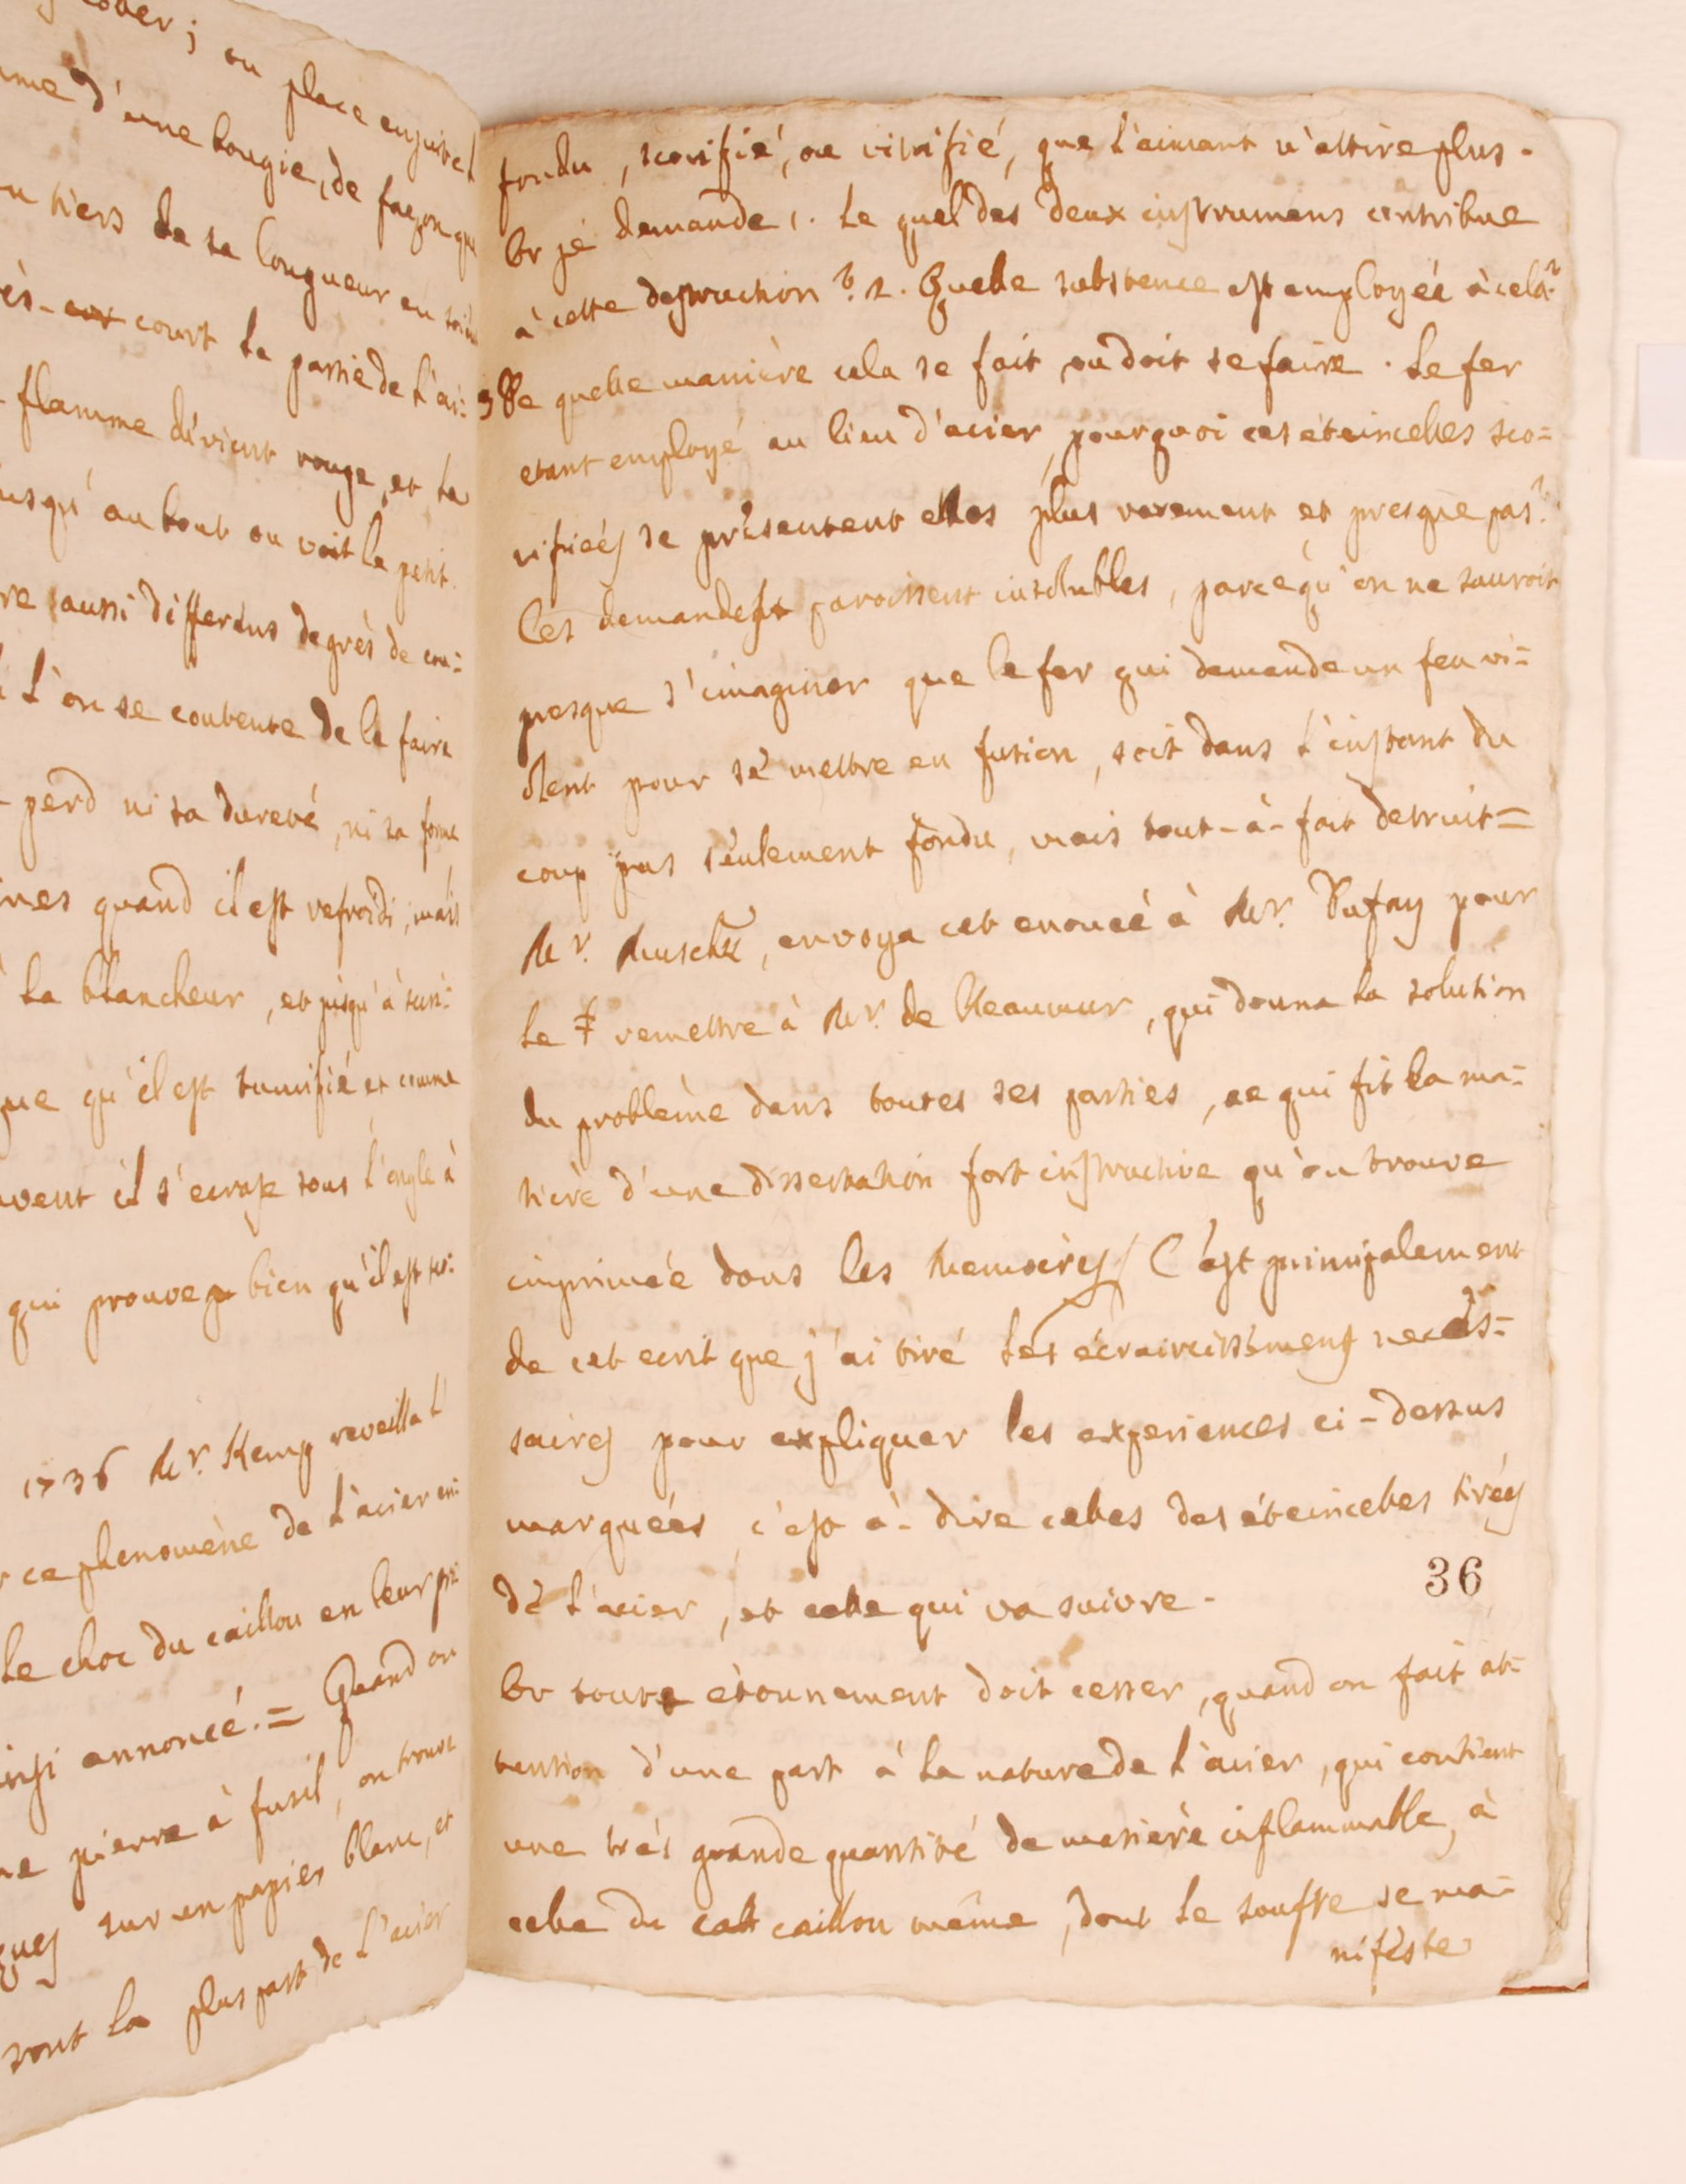 ; on place ensuite l
me d'une bougie, de façon que
n tiers de sa longueur en soit
ès-cor court la partie de l'ai=
flamme dévient rouge, et la
usqu' au bout on voit le petit
re aussi differens degrès de cou=
l'on se contente de le faire
perd ni sa dureté, ni sa forme
nes quand il est refroidi; mais
la blancheur, et jusqu'à
que qu'il est tumifié et comme
vent il s'ecrase sous l'ongle à
qui prouve bien qu'il est
1736 Mr. Kemp reveilla l'
ce phenomène de l'acier
le choc du caillou en leur
insi annoncé.= Quand on
ne pierre à fusil, on trouve
sur un papier blanc, et
sont la plus part de l'acier
fondu, scorifié, ou vitrifié, que l'aimant n'attire plus.
Or jé demande 1. Le quel des deux instrumens contribue
à cette destruction? 2. Quelle substence est employéé à cela?
3 De quelle manière cela se fait ou doit se faire. Le fer
etant employé au lieu d'acier, pourquoi ces éteincelles sco=
rifiéés se présentent elles plus rarement et presque pas?
Ces demandes paroissent insolubles, parcequ'on ne sauroit
presque s'imaginer que le fer qui demande un feu vi=
olent pour sé mettre en fusion, soit dans l'instant du
coup pas séulement fondu, mais tout-à-fait detruit=
Mr. Musch, envoya cet enoncé à Mr. Dufay pour
le remettre à Mr. de Reaumur, qui donna la solution
du problème dans toutes ses parties, ce qui fit la ma=
tière d'une dissertation fort instructive qu'on trouve
imprimée dans les Memoires/ C'est principalement
de cet ecrit que j'ai tiré les écraircissémens neces=
saires pour expliquer les experiences ci-dessus
marquéés, c'est à-dire celles des éteincelles tiréés
dé l'acier, et celle qui va suivre.
36
Or toute étonnement doit cesser, quand on fait at=
tention d'une part à la nature de l'acier, qui contient
une trés grande quantité de matière inflammable, à
celle du caillou même, dont le souffre se ma=
nifeste